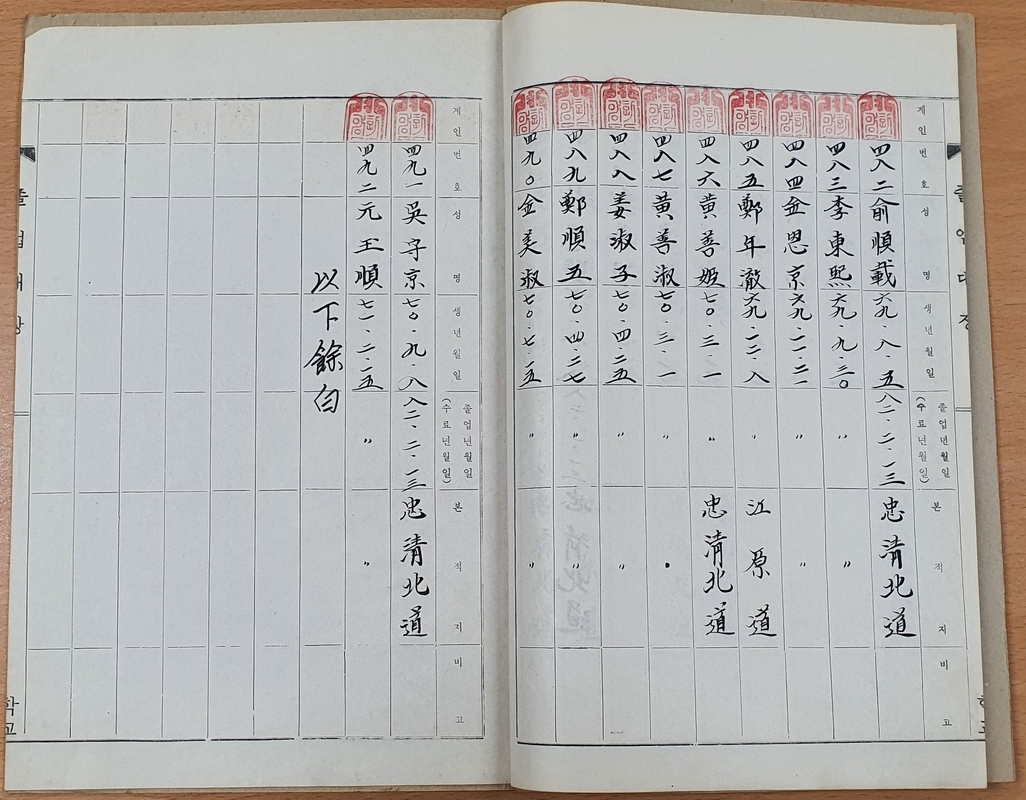 계인
번호
성명
생년월일
졸업년월일
(수료년월일)
본적지
비고
四八二 兪順載 六九·八·五 八二·二·一三 忠淸北道
四八三 李東熙 六九·九·三〇 〃 〃
四八四 金恩京 六九·一一·二一 〃 〃
四八五 鄭年澈 六九·一二·八 〃 江原道
四八六 黄善姬 七〇·三·一 〃 忠淸北道
四八七 黄善淑 七〇·三·一 〃 〃
四八八 姜淑子 七〇·四·二五 〃 〃
四八九 鄭順五 七〇·四·二七 〃 〃
四九〇 金美淑 七〇·七·一五 〃 〃
계인
번호
성명
생년월일
졸업년월일
(수료년월일)
본적지
비고
四九一 吳守京 七〇·九·八 八二·二·一三 忠淸北道
四九二 元玉順 七一·二·一五 〃 〃
以下餘白
학교